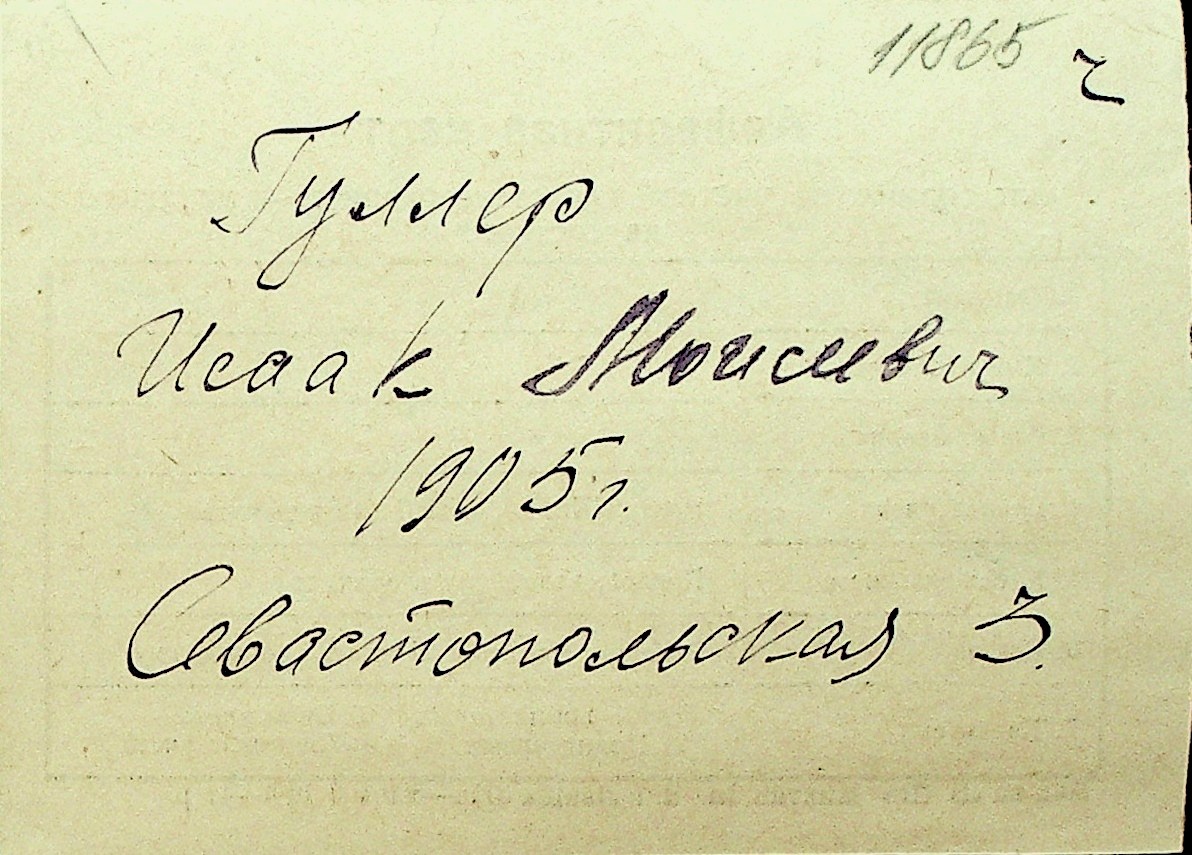 11865 ч
Гуллер
Исаак Моисеевич
1905 г.
Севастопольская 3.